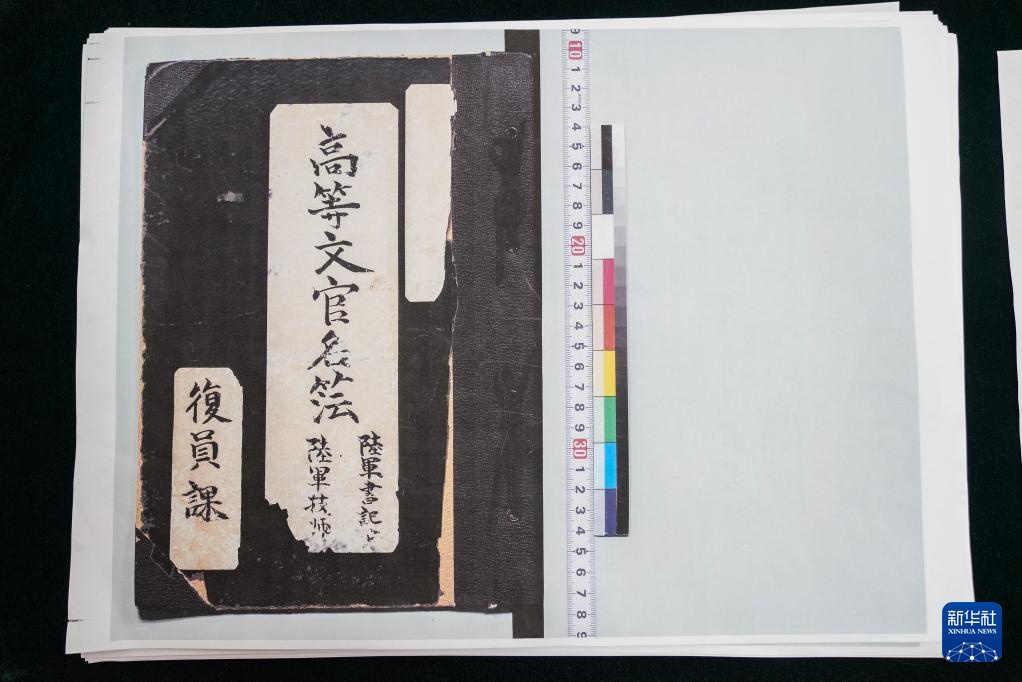 高等文官名簿
陸軍書記
陸軍技师
復員課
9 10 1 2 3 4 5 6 7 8 9 20 1 2 3 4 5 6 7 8 9 30 1 2 3 4 5 6 7 8 9
新华社
XINHUA NEWS